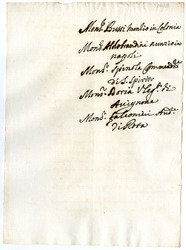 Mons.r Bussi nunzio in Colonia
Mons.r Aldobrandini nunzio in
napoli
Mons.r Spinola Commend.re
di S. Spirito
Mons.r Doria V.leg.o di
Avignone
Mons.r Falconieri Aud.e
di Rota